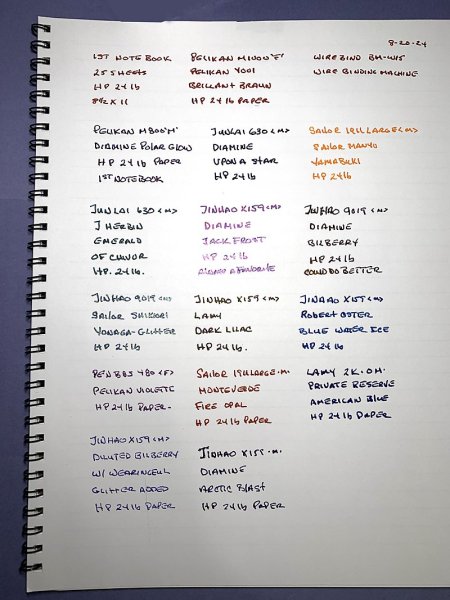 8-20-24
1ST NOTEBOOK
25 SHEETS
HP 24 lb
8½ X 11
PELIKAN M1000 "F"
PELIKAN 4001
BRILLANT BRAUN
HP 24 lb PAPER
WIRE BIND BM-W15
WIRE BINDING MACHINE
PELIKAN M800 "M"
DIAMINE POLAR GLOW
HP 24 lb PAPER
1ST NOTEBOOK
JUNLAI 630 <M>
DIAMINE
UPON A STAR
HP 24 lb
SAILOR 1911 LARGE <M>
SAILOR MANYO
YAMABUKI
HP 24 lb
JUNLAI 630 <M>
J HERBIN
EMERALD
OF CHIVOR
HP. 24 lb.
JINHAO X159 <M>
DIAMINE
JACK FROST
HP 24 lb
ALWAYS A FAVORITE
JINHAO 9019 <M>
DIAMINE
BILBERRY
HP 24 lb
COULD DO BETTER
JINHAO 9019 <M>
SAILOR SHIKIORI
YONAGA-GLITTER
HP 24 lb
JINHAO X159 <M>
LAMY
DARK LILAC
HP 24 lb.
JINHAO X159 <M>
ROBERT OSTER
BLUE WATER ICE
HP 24 lb
PENBBS 480 <F>
PELIKAN VIOLETTE
HP 24 lb PAPER-
SAILOR 1911 LARGE .M.
MONTEVERDE
FIRE OPAL
HP 24 lb PAPER
LAMY 2K .OM.
PRIVATE RESERVE
AMERICAN BLUE
HP 24 lb PAPER
JINHAO X159 <M>
DILUTED BILBERRY
W/ WEARINGEUL
GLITTER ADDED
HP 24 lb PAPER
JINHAO X159 .M.
DIAMINE
ARCTIC BLAST
HP 24 lb PAPER